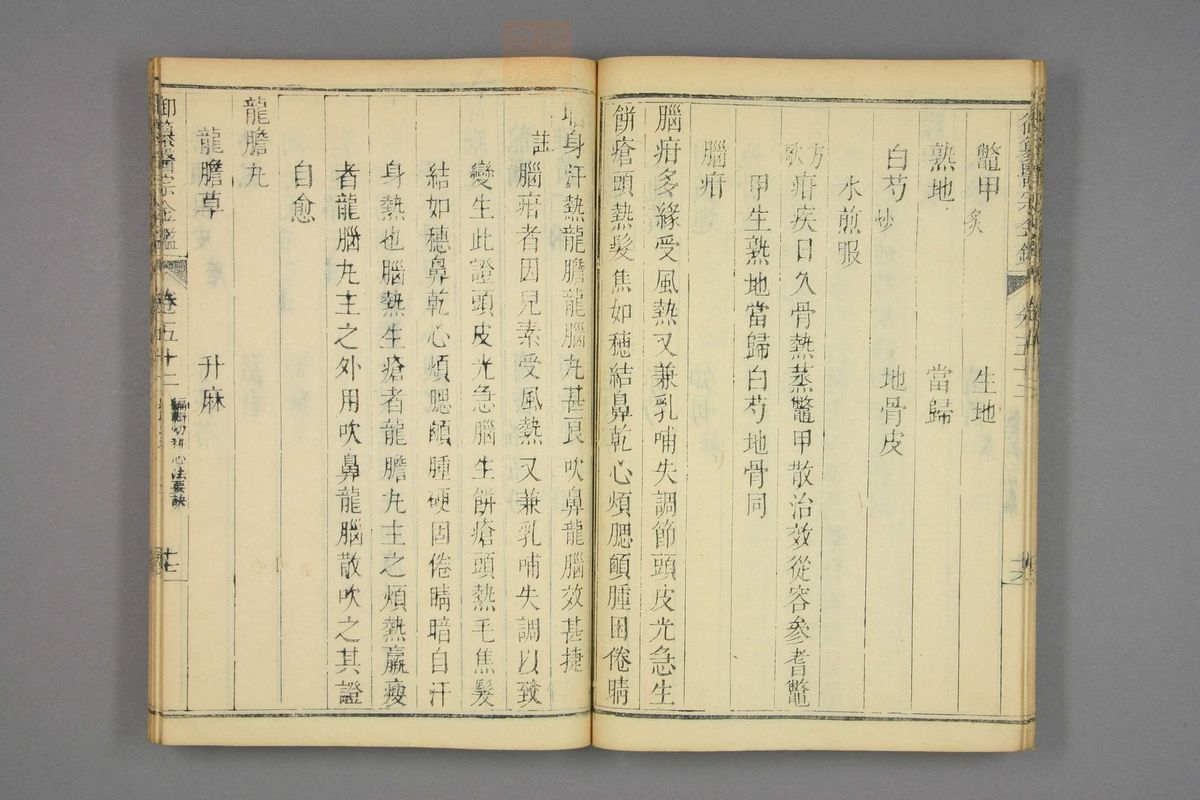 鼈甲炙 生地
熟地 當歸
白芍炒 地骨皮
水煎服
方歌 疳疾日久骨熱蒸鼈甲散治效從容參耆鼈
甲生熟地當歸白芍地骨同
腦疳
腦疳多緣受風熱又兼乳哺失調節頭皮光急生
餅瘡頭熱髮焦如穗結鼻乾心煩腮䪼腫困倦睛
身汗熱龍膽龍腦丸甚良吹鼻龍腦效甚捷
註 腦疳者因兒素受風熱又兼乳哺失調以致
變生此證頭皮光急腦生餅瘡頭熱毛焦髮
結如穗鼻乾心煩腮䪼腫硬困倦睛暗自汗
身熱也腦熱生瘡者龍膽丸主之煩熱羸瘦
者龍腦丸主之外用吹鼻龍腦散吹之其證
自愈
龍膽丸
龍膽草 升麻
御纂醫宗金鑑 卷五十二 編輯幼科心法要訣 十七